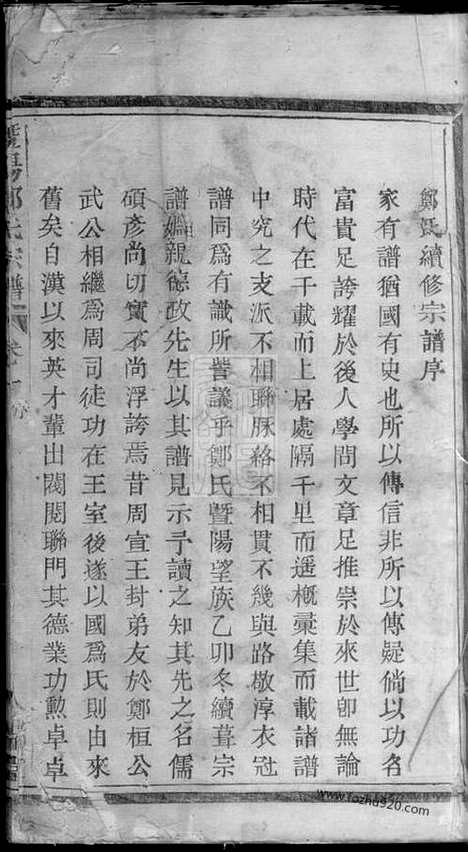 鄭氏續修宗譜序
家有譜猶國有史也所以傳信非所以傳疑倘以功名
富貴足誇耀於後人學問文章足推崇於來世卽無論
時代在千載而上居處隔千里而遥槪彙集而載諸譜
中究之支派不相聯脉絡不相貫不幾與路敬淳衣冠
譜同爲有識所訾議乎鄭氏暨陽望族乙卯冬續葺宗
譜姻親德政先生以其譜見示予讀之知其先之名儒
碩彥尚切實不尚浮誇焉昔周宣王封弟友於鄭桓公
武公相繼爲周司徒功在王室後遂以國爲氏則由來
舊矣自漢以來英才輩出閥閱聯門其德業功勲卓卓
暨陽鄭氏宗譜
卷一
www.fozhu920.com